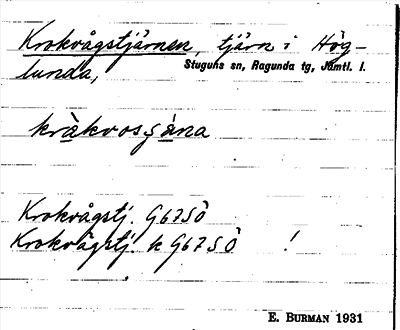 Krokvågstjärnen, tjärn i Hög-
lunda, Stuguns sn, Ragunda tg, Jämtl. l.
kràkvosȿàna
Krokvågstj. G67SÖ
Krokvågstj. k G67SÖ !
E. BURMAN 1931